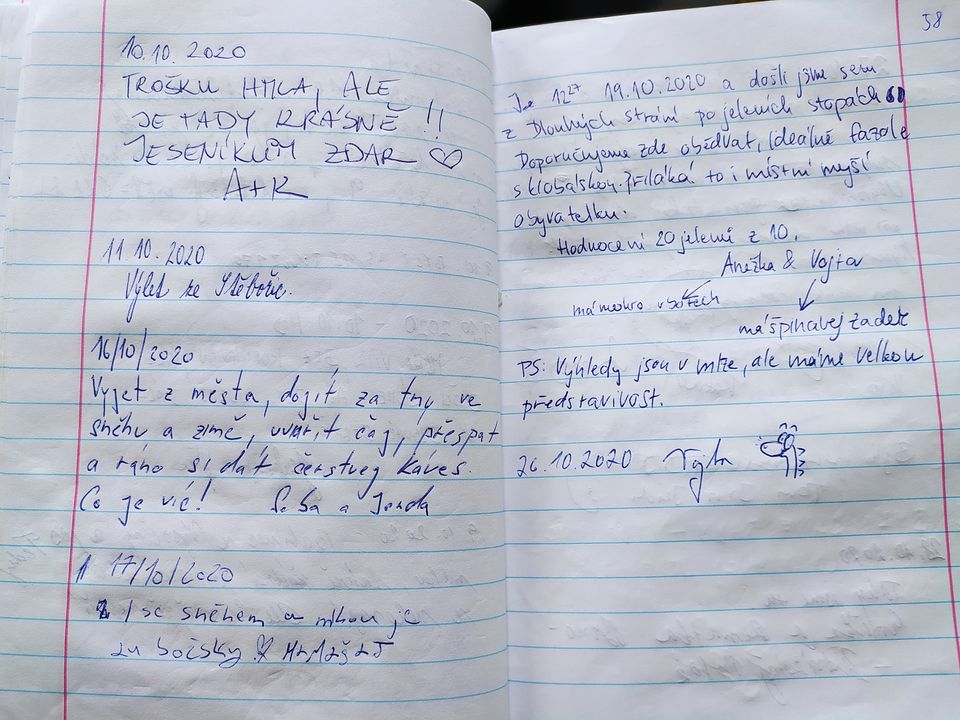 10.10. 2020
TROŠKU MHLA, ALE
JE TADY KRÁSNĚ !!
JESENÍKŮM ZDAR ♡
A+K
11 10. 2020
Výlet ze Stěbořic.
16/10/2020
Vyjet z města, dojít za tmy ve
sněhu a zimě, uvařit čaj, přespat
a ráno si dát čerstvej
Co je víc! Seba a Jenda
17/10/2020
I se sněhem a mlhou je
tu božsky
38
Je 12²⁷ 19.10.2020 a došli jsme sem
z Dlouhých strání po jeleních stopách
Doporučujeme zde obědvat, ideálně fazole
s klobáskou. Přiláká to i místní myší
obyvatelku.
Hodnocení 20 jelenů z 10.
Anežka & Vojta
má mokro v botech
má špinavej zadek
PS: Výhledy jsou v mlze, ale máme velkou
představivost.
26.10.2020